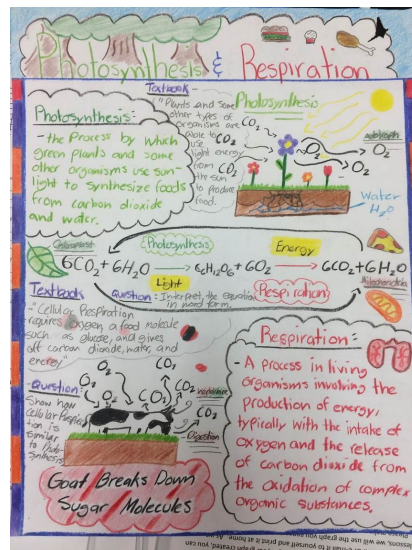 Photosynthesis & Respiration
Photosynthesis:
- the process by which
green plants and some
other organisms use sun-
light to synthesize foods
from carbon dioxide
and water.
Textbook-
"Plants and some
other types of
organisms are
able to
use
light energy
from
the sun
to produce
food.
Photosynthesis
CO2
CO2
CO2
CO2
O2
O2
O2
O2
autotroph
Water
H2O
Chloroplast
Photosynthesis
Energy
6CO2+6H2O → C6H12O6+6O2 → 6CO2+6H2O
Light
Respiration
Mitochondria
Question: Interpret the equation
in word form.
Textbook
- "Cellular Respiration
requires oxygen, a food molecule
such as glucose, and gives
off carbon dioxide, water, and
energy."
Question:
Show how
Cellular Respirat-
ion is
similar
to photo-
synthesis
O2
O2
O2
O2
CO2
CO2
CO2
CO2
Digestion
Goat Breaks Down
Sugar Molecules
Respiration:
- A process in living
organisms involving the
production of energy,
typically with the intake of
oxygen and the release
of carbon dioxide from
the oxidation of complex
organic substances.